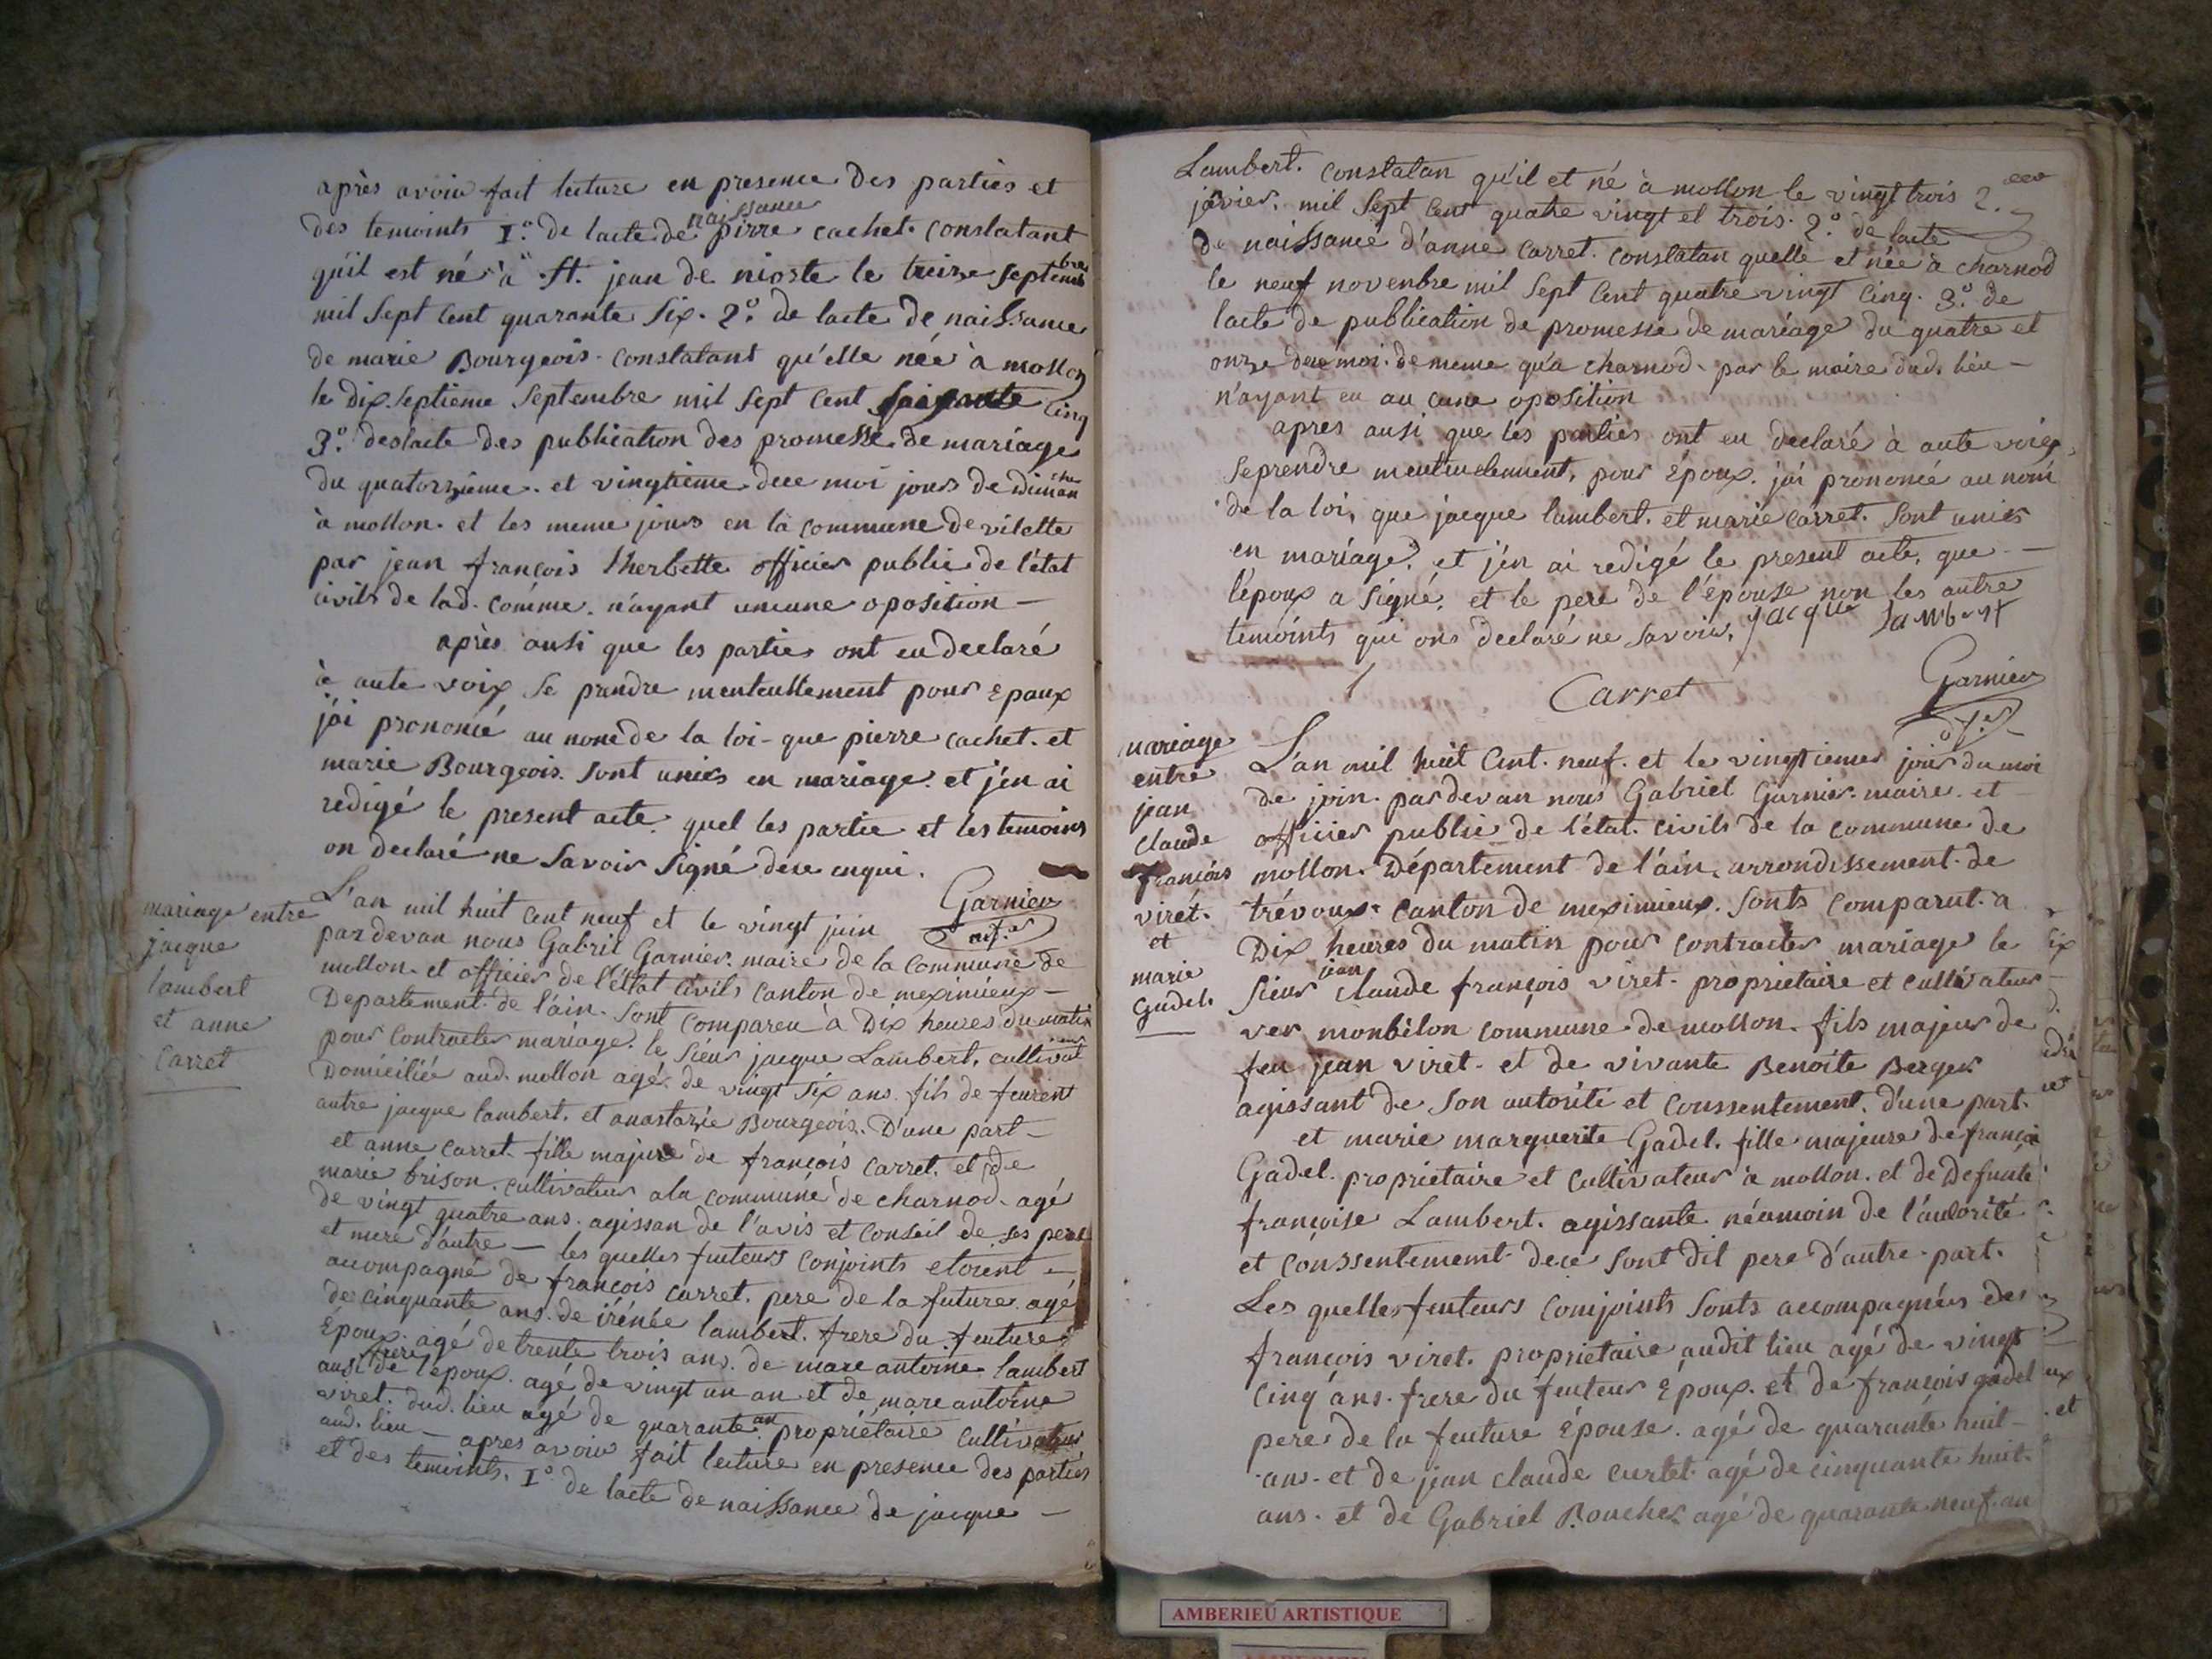 après avoir fait lecture en presence des parties et
des temoints 1.° de lacte de naissance pirre cachet. constatant
qu'il est né à St. jean de nioste le treize septembre
mil Sept Cent quarante Six. 2.° de lacte de naissance
de marie Bourgeois. constatant qu'elle née à mollon
le dix septieme Septembre mil Sept Cent soixante cinq
3.° des lacte des publication des promesse de mariage
du quatorzieme. et vingtieme dece moi jours de Diman che
à mollon. et les meme jours en la commune de vilette
par jean françois therbette officier public de l'état
civils de lad. comme. n'ayant uncune oposition —
après ausi que les partie ont eu declaré
à aute voix se prendre meuteullement pour Epoux
j'ai prononcé au nome de la loi - que pierre cachet. et
marie Bourgeois. sont unies en mariage. et j'en ai
redigé le present acte. quel les partie et les temoins
on declaré ne Savoir Signé dece enqui.
Garnier
off.er
mariage entre
jacque
lambert
et anne
Carret
L'an mil huit cent neuf et le vingt juin
pardevan nous Gabriel Garnier. maire de la Commune de
mollon. et officier de l'état civils canton de meximieux —
Departement de l'ain. Sont compareu à Dix heures du matin
pour contracter mariage. le Sieur jacque Lambert. cultivateur
Domiciliée aud. mollon agé. de vingt Six ans. fils de feurent
autre jacque lambert. et anastazie Bourgeois. D'une part —
et anne carret. fille majure de françois carret. et de
marie brison. cultivateur a la commune de charnod. agé
de vingt quatre ans. agissan de l'avis et conseil de ses pere
et mere d'autre — les quelles futeurs conjoints etoient —
accompagné de françois carret. pere de la future. agé
de cinquante ans. de irénée lambert. frere du feuture
Époux. agé de trente trois ans. de marc antoine lambert
ausi frere de l'epoux. agé de vingt un an et de marc antoine
viret. dud. lieu agé de quarante an propriétaire cultivateur
aud. lieu — apres avoir fait lecture en presence des parties
et des temoints. 1.° de lacte de naissance de jacque —
Lambert. constatan qu'il et né à mollon le vingt trois
jovier. mil Sept Cent quatre vingt et trois. 2.° de lacte
De naissance d'anne carret. constatan quelle et née à charnod
le neuf novenbre mil Sept Cent quatre vingt Cinq. 3.° de
lacte de publication de promesse de mariage du quatre et
onze dece moi. de meme qu'a charnod. par le maire dud. lieu —
n'ayant eu au cune oposition
apres ausi que les parties ont eu declaré à aute voix,
Se prendre meuteuelement, pour Époux. j'ai prononcé au nom
de la loi, que jacque lambert. et marie carret. Sont unies
en mariage. et j'en ai redigé le present acte, que —
l'époux a Signé. et le pere de l'épouse non les autre
temoints qui ons declaré ne Savoir. jacque Lambert
Carret
Garnier
off.er
mariage
entre
jean
Claude
françois
viret.
et
marie
Gadel.
L'an mil huit Cent. neuf. et le vingtieme jour du moi
de join. par devan nous Gabriel Garnier. maire. et
officier public de l'état. civils de la commune de
mollon. Département de l'ain. arrondissement de
trévoux. canton de meximieux. Sonts comparut. a
Dix heures du matin pour contracter mariage le
Sieur jean claude françois viret. proprietaire et cultivateur
ver monbélon commune de mollon. fils majeur de
feu jean viret. et de vivante Benoite Berger
agissant de Son autorité et coussentement. d'une part.
et marie marguerite Gadel. fille majeure de françoi
Gadel. proprietaire et cultivateur à mollon. et de Defunte
françoise Lambert. agissante néamoin de l'autorité
et conssentememt dece sont dit pere d'autre part.
Les quelles feuteurs comjoints sonts accompagnées des
françois viret. proprietaire audit lieu agé de vingt
Cinq ans. frere du feuteur Époux. et de françois gadel
pere de la feuture Épouse. agé de quarante huit —
ans. et de jean claude curtet. agé de cinquante huit.
ans. et de Gabriel Boucher agé de quarante neuf an
AMBERIEU ARTISTIQUE